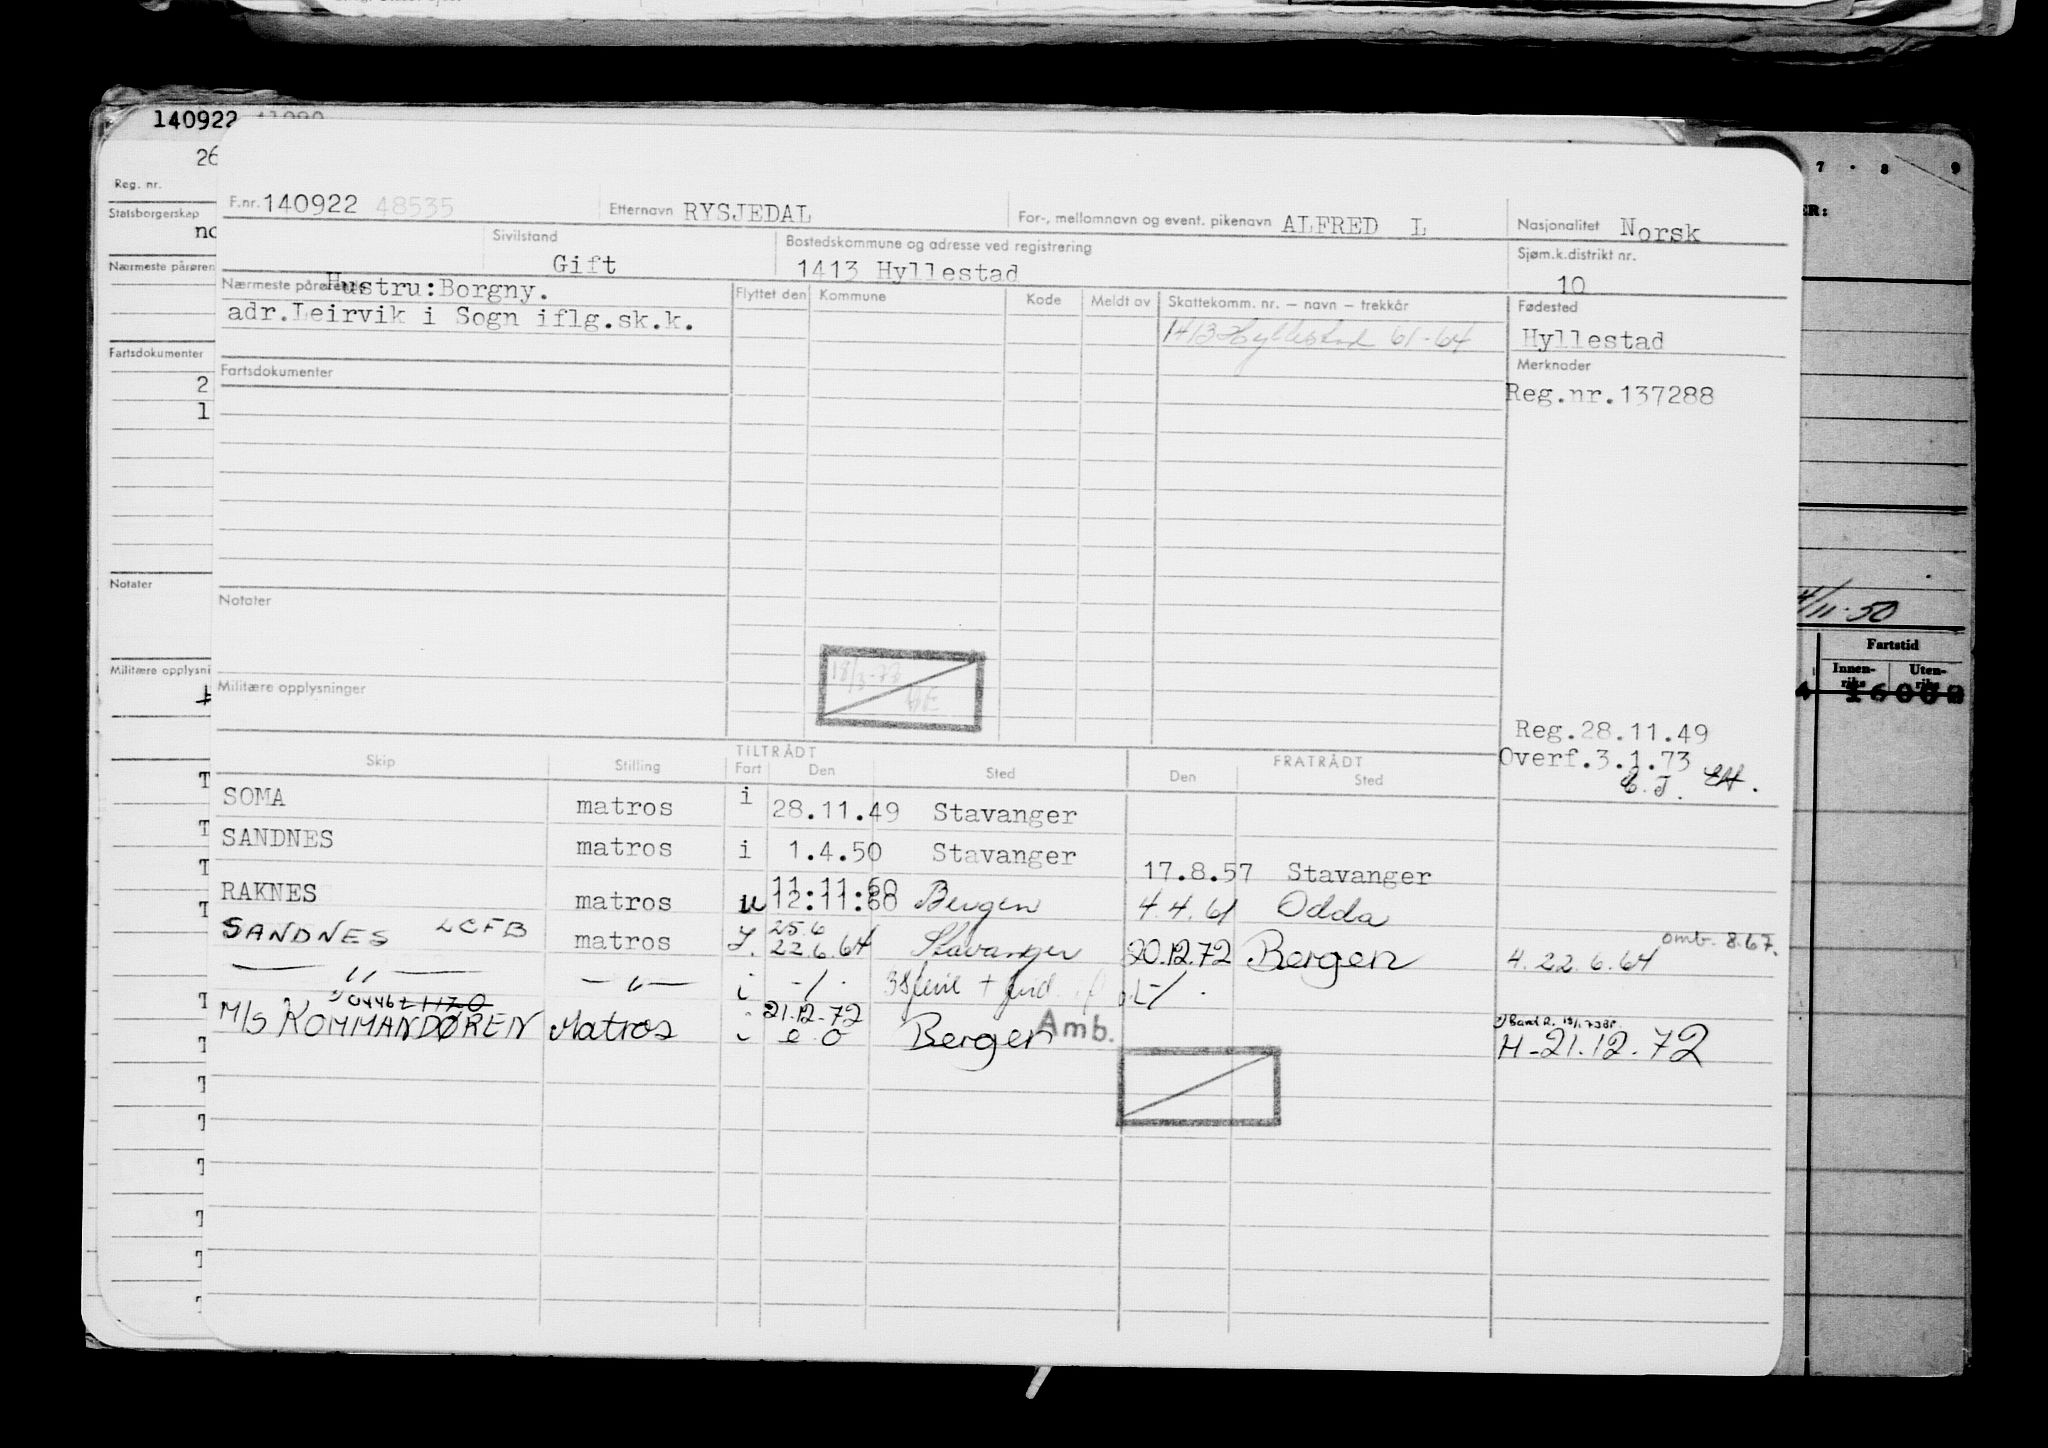 140922
26
Reg. nr.
Statsborgerskap
Nærmeste pårøren
Fartsdokumenter
2
1
Notater
Militære opplysni
F.nr. 140922 48535 Etternavn RYSJEDAL For-, mellomnavn og event. pikenavn ALFRED L Nasjonalitet Norsk
Sivilstand Gift Bostedskommune og adresse ved registrering 1413 Hyllestad Sjøm.k.distrikt nr. 10
Nærmeste pårørende Hustru:Borgny.
adr.Leirvik i Sogn iflg.sk.k.
Flyttet den Kommune Kode Meldt av Skattekomm. nr. – navn – trekkår Fødested
1413 Hyllestad 61-64 Hyllestad
Fartsdokumenter Merknader
Reg.nr.137288
Notater
18/3-73
Militære opplysninger
Reg.28.11.49
Overf.3.1.73
Skip Stilling TILTRÅDT Fart Den Sted FRATRÅDT Den Sted
SOMA matros i 28.11.49 Stavanger
SANDNES matros i 1.4.50 Stavanger 17.8.57 Stavanger
11.11.60
RAKNES matros u 12.11.60 Bergen 4.4.61 Odda
25.6
SANDNES LCFB matros 22.6.64 Stavanger 20.12.72 Bergen 4.22.6.64 omb. 8.67.
— " — — " — i -/-
0446 21.12.72
M/S KOMMANDØREN Matros i Bergen Amb. H-21.12.72
7 . 8 9
ER:
/11-50
Fartstid
Innen-riks Uten-riks